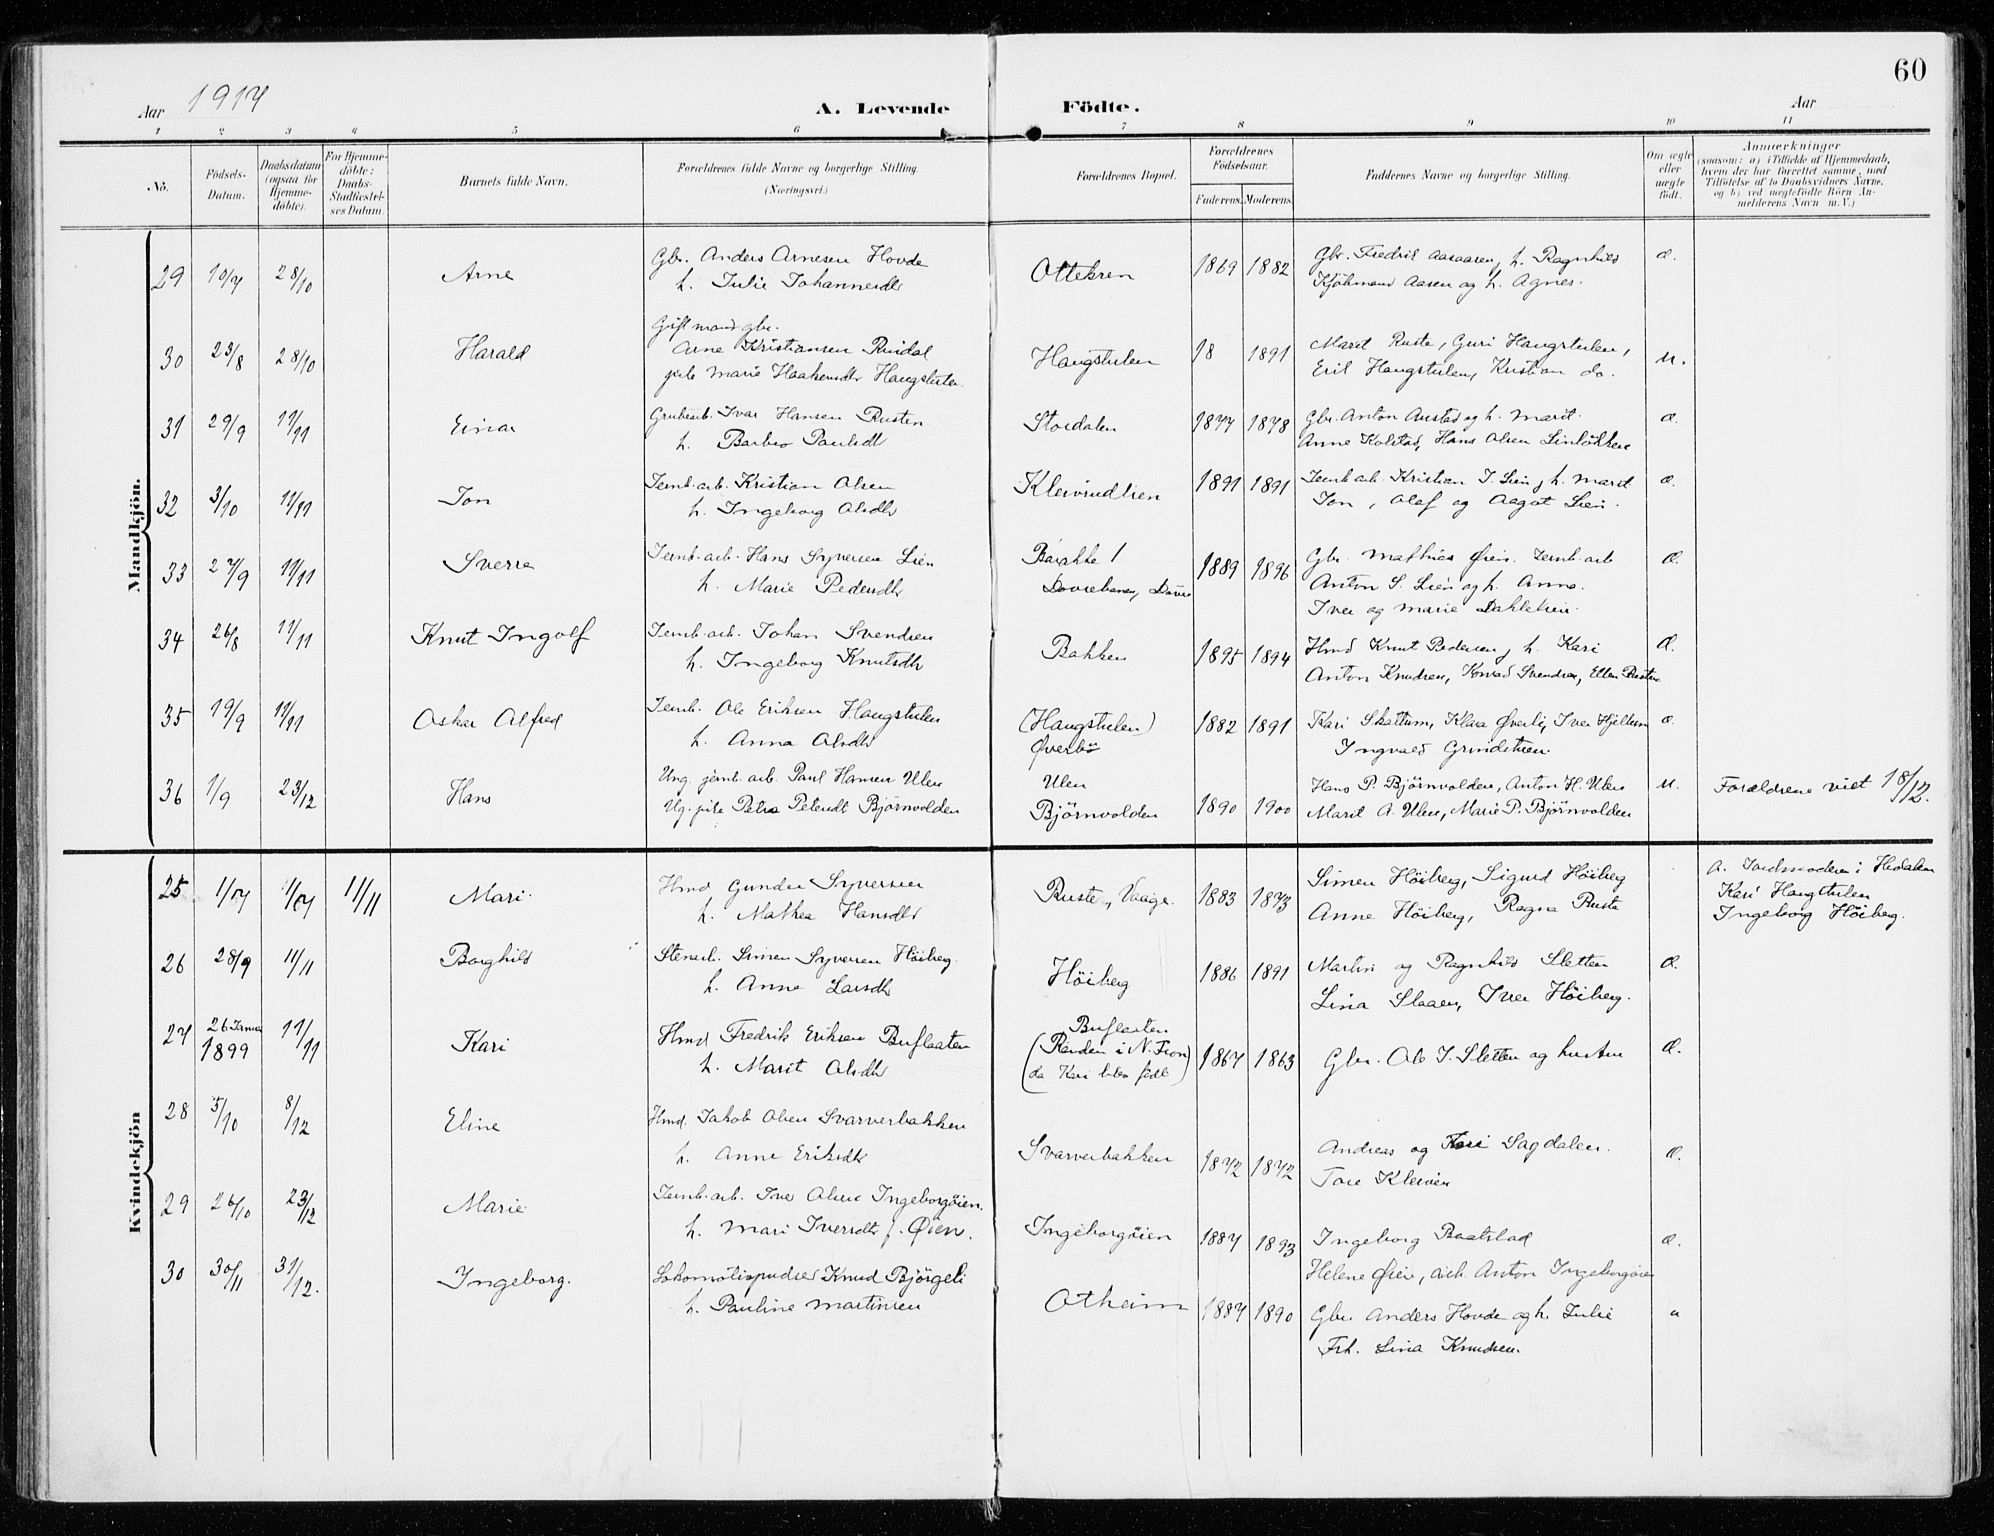 60
Aar 1917 A. Levende Födte. Aar
1 2 3 4 5 6 7 8 9 10 11
No. Födsels-Datum. Daabsdatum (ogsaa for Hjemme-döbte). For Hjemme-döbte: Daabs-Stadfæstel-ses Datum. Barnets fulde Navn. Forældrenes fulde Navne og borgerlige Stilling. (Næringsvei.) Forældrenes Bopæl. Forældrenes Födselsaar. Faderens. Moderens. Faddernes Navne og borgerlige Stilling. Om ægte eller uægte födt. Anmærkninger (saasom: a) i Tilfælde af Hjemmedaab, hvem der har forrettet samme, med Tilföielse af to Daabsvidners Navne, og b) ved uægtefödte Börn Anmelderens Navn m. V.)
Mandkjön.
29 10/7 28/10 Arne Gbr. Anders Arnesen Hovde Ottekren 1869 1882 Gbr. Fredrik Aasaaren, h. Ragnhild Æ.
h. Julie Johannesdtr Aasen og h. Agnes.
30 23/8 28/10 Harald Gift mand gbr. Haugstulen 18 1891 Marit Ruste, Guri Haugstulen, U.
Arne Kristiansen Rindal Erik Haugstulen, Kristian do.
pike Marie Haakensdtr Haugstulen
31 29/9 11/11 Einar Grubearb. Ivar Hansen Rusten Stordalen 1877 1878 Gbr. Anton Austad og h. Marit. Æ.
h. Barbro Paulsdtr Anne Kolstad, Hans Olsen Linløkken
32 3/10 11/11 Jon Jernb.arb. Kristian Olsen Kleivrudlien 1891 1891 Jernb.arb. Kristian J. Lien, h. Marit Æ.
h. Ingeborg Olsdtr Jon, Olaf og Aagot Lien.
33 27/9 11/11 Sverre Jernb.arb. Hans Syversen Lien Barakke 1 1889 1896 Gbr. Mathias Øien. Jernb.arb Æ.
h. Marie Pedersdtr Dovrebanen, Dovre Anton S. Lien og h. Anne.
Iver og Marie
34 26/8 11/11 Knut Ingolf Jernb.arb. Johan Svendsen Bakken 1895 1894 Hmd Knut Pedersen, h. Kari Æ.
h. Ingeborg Knutsdtr Anton Knudsen, Konrad Svendsen, Ellen Rusten
35 19/9 11/11 Oskar Alfred Jernb. Ole Eriksen Haugstulen (Haugstulen) 1882 1891 Kari Skattum, Klara Øverli, Iver Hjellum Æ.
h. Anna Olsdtr Øverbö Ingvald Grindstuen.
36 1/9 23/12 Hans Ung. jernb.arb. Paul Hansen Ulen Ulen 1890 1900 Hans P. Björnvolden, Anton H. Ulen U. Forældrene viet 18/12.
Ug. pike Petra Petersdt Björnvolden Björnvolden Marit A. Ulen, Marie P. Björnvolden
Kvindekjön
25 1/07 1/07 11/11 Mari. Hmd Gunder Syversen Ruste, Vaage. 1883 1873 Simen Höiberg, Sigurd Höiberg a. Jordmoderen i Hedalen
h. Mathea Hansdtr Anne Höiberg, Ragna Ruste Kari Haugstulen
Ingeborg Höiberg.
26 28/9 11/11 Borghild Stenarb. Simen Syversen Höiberg. Höiberg 1886 1891 Martin og Ragnhild Sletten Æ.
h. Anne Larsdtr Lina Slaaen, Iver Höiberg.
27 26 Januar 1899 11/11 Kari Hmd Fredrik Eriksen Buflaaten Buflaaten 1867 1863 Gbr. Ole J. Sletten og hustru Æ.
h. Marit Olsdtr (Randen i N. Fron
da Kari blev født)
28 5/10 8/12 Eline Hmd. Jakob Olsen Svarverbakken Svarverbakken 1872 1872 Andreas og Kari Sagdalen. Æ.
h. Anne Eriksdtr Tore Kleiven
29 26/10 23/12 Marie Jernb.arb. Iver Olsen Ingeborgöien. Ingeborgöien 1887 1893 Ingeborg Baatstad Æ.
h. Mari Iversdtr f. Øien. Helene Øien, Anton Ingeborgöien
30 30/11 31/12. Ingeborg. Lokomotivpudser Knud Björgeli Otheim 1887 1890 Gbr. Anders Hovde og h. Julie
h. Pauline Martinsen Frk. Lina Knudsen.